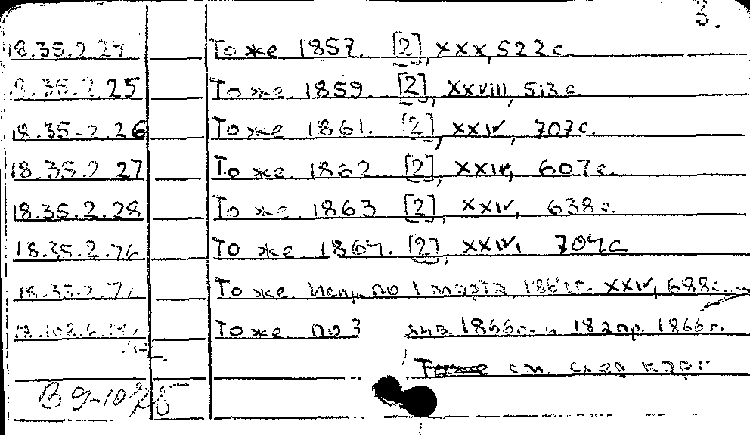 3.
18.35.2.27 То же 1857. [2], XXX, 522 с.
18.35.2.25 То же 1859. [2], XXVIII, 513 с.
18.35.2.26 То же 1861. [2], XXIV, 707 с.
18.35.2.27 То же 1862 [2], XXIV, 607 с.
18.35.2.28 То же 1863 [2], XXIV, 638 с.
18.35.2.76 То же 1864. [2], XXIV. 704 с
То же. Испр. по 1 марта XXIV, 688 с.
То же по 3 янв. 1866 г. и 18 апр. 1866 г.
Тоже см. след карт